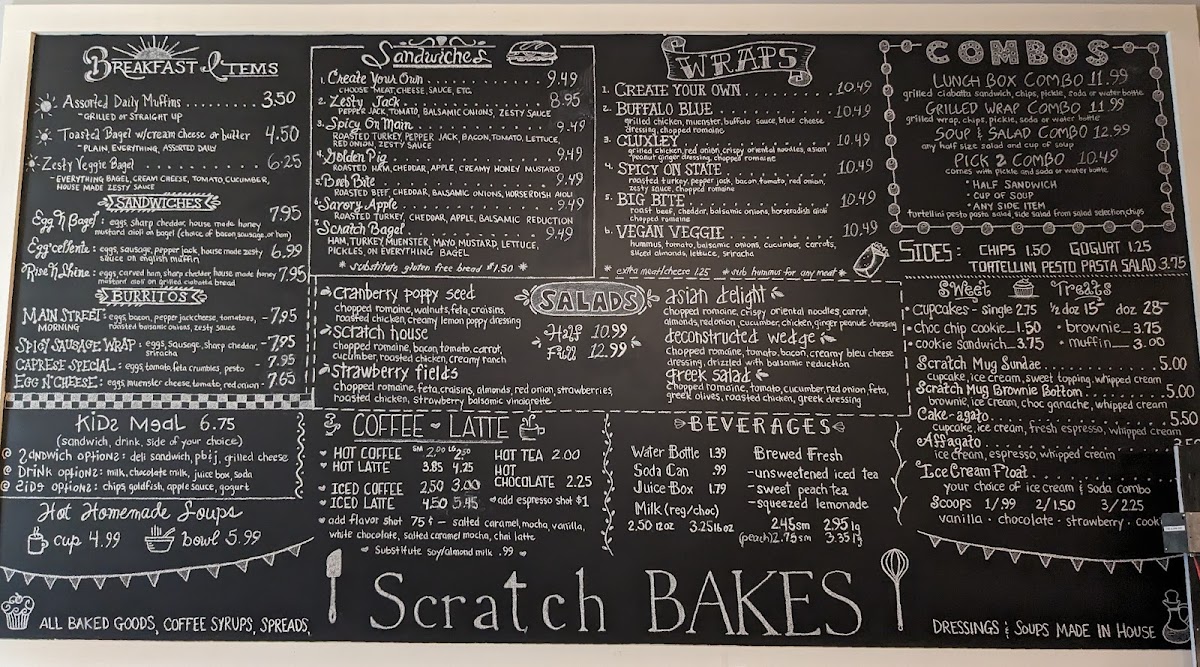 BREAKFAST ITEMS
Assorted Daily Muffins ......... 3.50
-GRILLED or STRAIGHT UP
Toasted Bagel w/cream cheese or butter 4.50
-PLAIN, EVERYTHING, ASSORTED DAILY
Zesty Veggie Bagel ......... 6.25
-EVERYTHING BAGEL, CREAM CHEESE, TOMATO, CUCUMBER,
HOUSE MADE ZESTY SAUCE
SANDWICHES
Egg N Bagel: eggs, sharp cheddar, house made honey 7.95
mustard aioli on bagel (choice of bacon, sausage, or ham)
Egg'cellent: eggs, sausage, pepper jack, house made zesty 6.99
sauce on english muffin
Rise N Shine: eggs, carved ham, sharp cheddar, house made honey 7.95
mustard aioli on grilled ciabatta bread
BURRITOS
MAIN STREET: eggs, bacon, pepper jack cheese, tomatoes, - 7.95
MORNING roasted balsamic onions, zesty sauce
SPICY SAUSAGE WRAP: eggs, sausage, sharp cheddar, - 7.95
sriracha
CAPRESE SPECIAL: eggs, tomato, feta crumbles, pesto 7.95
EGG N' CHEESE: eggs, muenster cheese, tomato, red onion - 7.65
KiDS MEAL 6.75
(sandwich, drink, side of your choice)
SANDWICH OPTIONS: deli sandwich, pb&j, grilled cheese
DRINK OPTIONS: milk, chocolate milk, juice box, soda
SIDE OPTIONS: chips, goldfish, apple sauce, gogurt
Hot Homemade Soups
cup 4.99 bowl 5.99
ALL BAKED GOODS, COFFEE SYRUPS, SPREADS,
Sandwiches
1. Create Your Own ......... 9.49
CHOOSE MEAT, CHEESE, SAUCE, ETC.
2. Zesty Jack ......... 8.95
PEPPER JACK, TOMATO, BALSAMIC ONIONS, ZESTY SAUCE
3. Spicy On Main ......... 9.49
ROASTED TURKEY, PEPPER JACK, BACON, TOMATO, LETTUCE,
RED ONION, ZESTY SAUCE
4. Golden Pig ......... 9.49
ROASTED HAM, CHEDDAR, APPLE, CREAMY HONEY MUSTARD
5. Barb Bite ......... 9.49
ROASTED BEEF, CHEDDAR, BALSAMIC ONIONS, HORSERDISH AIOLI
6. Savory Apple ......... 9.49
ROASTED TURKEY, CHEDDAR, APPLE, BALSAMIC REDUCTION
7. Scratch Bagel ......... 9.49
HAM, TURKEY, MUENSTER, MAYO MUSTARD, LETTUCE,
PICKLES, ON EVERYTHING BAGEL
* substitute gluten free bread $1.50 *
WRAPS
1. CREATE YOUR OWN ......... 10.49
2. BUFFALO BLUE ......... 10.49
grilled chicken, muenster, buffalo sauce, blue cheese
dressing, chopped romaine
3. CLUXLEY ......... 10.49
grilled chicken, red onion, crispy oriental noodles, asian
peanut ginger dressing, chopped romaine
4. SPICY ON STATE ......... 10.49
roasted turkey, pepper jack, bacon, tomato, red onion,
zesty sauce, chopped romaine
5. BIG BITE ......... 10.49
roast beef, cheddar, balsamic onions, horseradish aioli
chopped romaine
6. VEGAN VEGGIE ......... 10.49
hummus, tomato, balsamic onions, cucumber, carrots,
sliced almonds, lettuce, sriracha
* extra meat/cheese 1.25 * sub hummus for any meat *
SALADS
Half 10.99
Full 12.99
cranberry poppy seed
chopped romaine, walnuts, feta, craisins,
roasted chicken, creamy lemon poppy dressing
scratch house
chopped romaine, bacon, tomato, carrot,
cucumber, roasted chicken, creamy ranch
strawberry fields
chopped romaine, feta, craisins, almonds, red onion, strawberries,
roasted chicken, strawberry balsamic vinaigrette
asian delight
chopped romaine, crispy oriental noodles, carrot,
almonds, red onion, cucumber, chicken, ginger peanut dressing
deconstructed wedge
Chopped romaine, tomato, bacon, creamy bleu cheese
dressing, drizzled with balsamic reduction
greek salad
chopped romaine, tomato, cucumber, red onion, feta,
greek olives, roasted chicken, greek dressing
COFFEE ~ LATTE
SM 2.00 LG 2.50
HOT COFFEE
HOT LATTE 3.85 4.25
ICED COFFEE 2.50 3.00
ICED LATTE 4.50 5.45
HOT TEA 2.00
HOT
CHOCOLATE 2.25
add espresso shot $1
add flavor shot 75¢ - salted caramel, mocha, vanilla,
white chocolate, salted caramel mocha, chai latte
Substitute Soy/almond milk .99
BEVERAGES
Water Bottle 1.39
Soda Can .99
Juice Box 1.79
Milk (reg/choc)
2.50 12oz 3.25 16oz
Brewed Fresh
-unsweetened iced tea
-sweet peach tea
-squeezed lemonade
2.45 sm 2.95 lg
(peach) 2.75 sm 3.35 lg
Scratch BAKES
COMBOS
LUNCH BOX COMBO 11.99
grilled ciabatta sandwich, chips, pickle, soda or water bottle
GRILLED WRAP COMBO 11.99
grilled wrap, chips, pickle, soda or water bottle
SOUP & SALAD COMBO 12.99
any half size salad and cup of soup
PICK 2 COMBO 10.49
comes with pickle and soda or water bottle
· HALF SANDWICH
· CUP OF SOUP
· ANY SIDE ITEM
tortellini pesto pasta salad, side salad from salad selection, chips
SIDES: CHIPS 1.50 GOGURT 1.25
TORTELLINI PESTO PASTA SALAD 3.75
Sweet Treats
· cupcakes - single 2.75 ½ doz 15- doz 28-
· choc chip cookie 1.50 · brownie 3.75
· cookie sandwich 3.75 · muffin 3.00
Scratch Mug Sundae ......... 5.00
cupcake, ice cream, sweet topping, whipped cream
Scratch Mug Brownie Bottom ......... 5.00
brownie, ice cream, choc ganache, whipped cream
Cake-agato ......... 5.50
cupcake, ice cream, fresh espresso, whipped cream
Affagato
ice cream, espresso, whipped cream
Ice Cream Float
your choice of ice cream & soda combo
Scoops 1/.99 2/1.50 3/2.25
vanilla · chocolate · strawberry ·
DRESSINGS & SOUPS MADE IN HOUSE